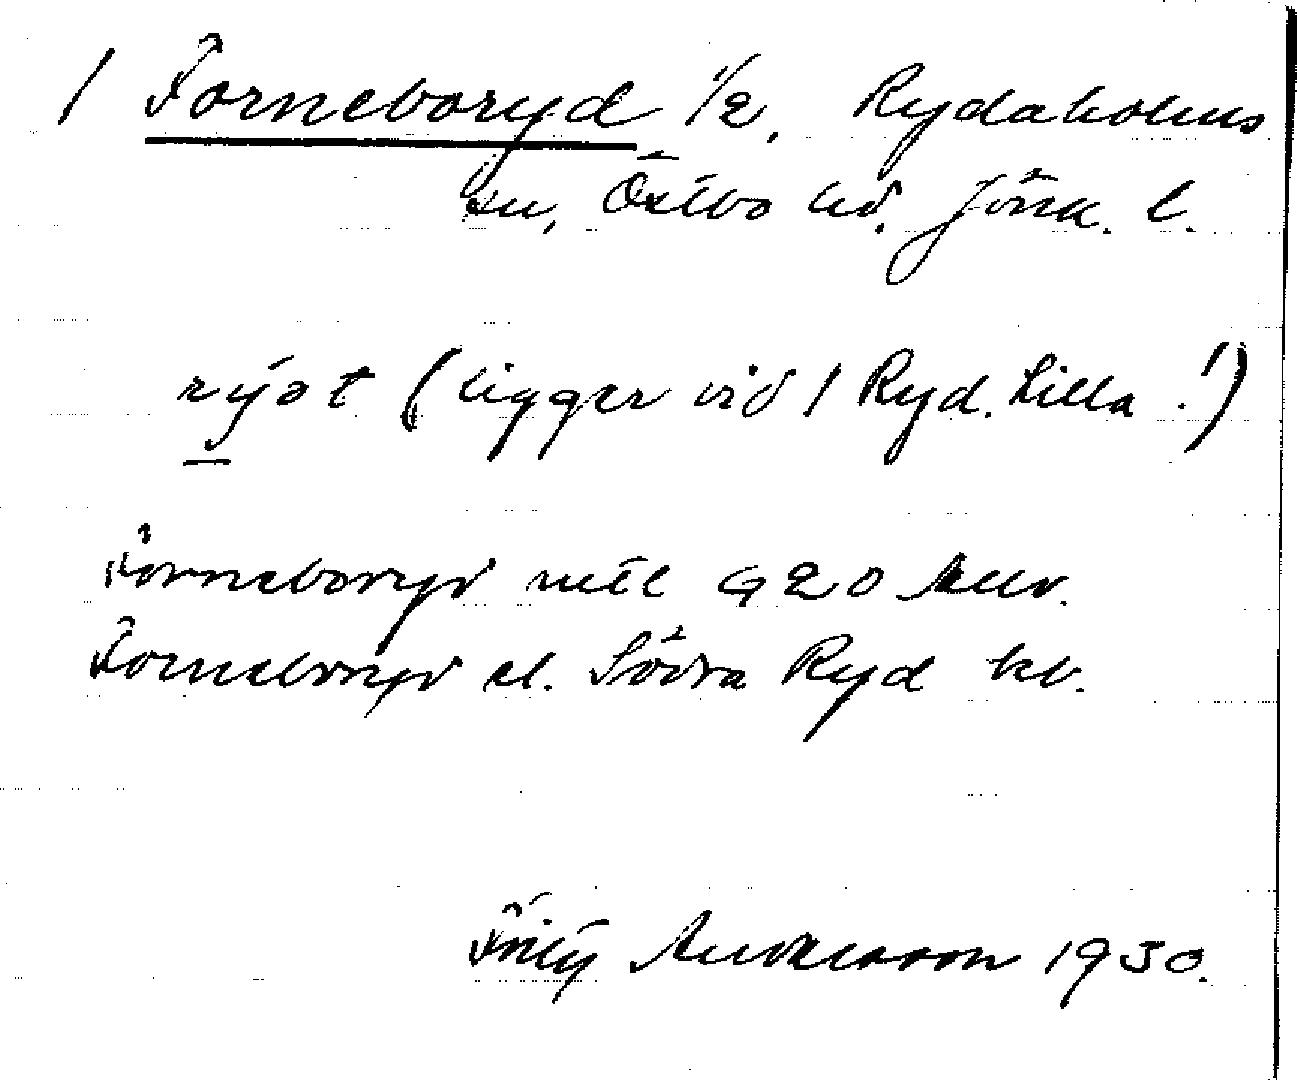 / Forneboryd 1/2, Rydaholms
sn, Östbo hd. Jönk. l.
rýst (ligger vid / Ryd. Lilla !)
Forneboryd mtl 920 Allv.
Forneboryd el. Södra Ryd kb.
Fritz Andersson 1930.